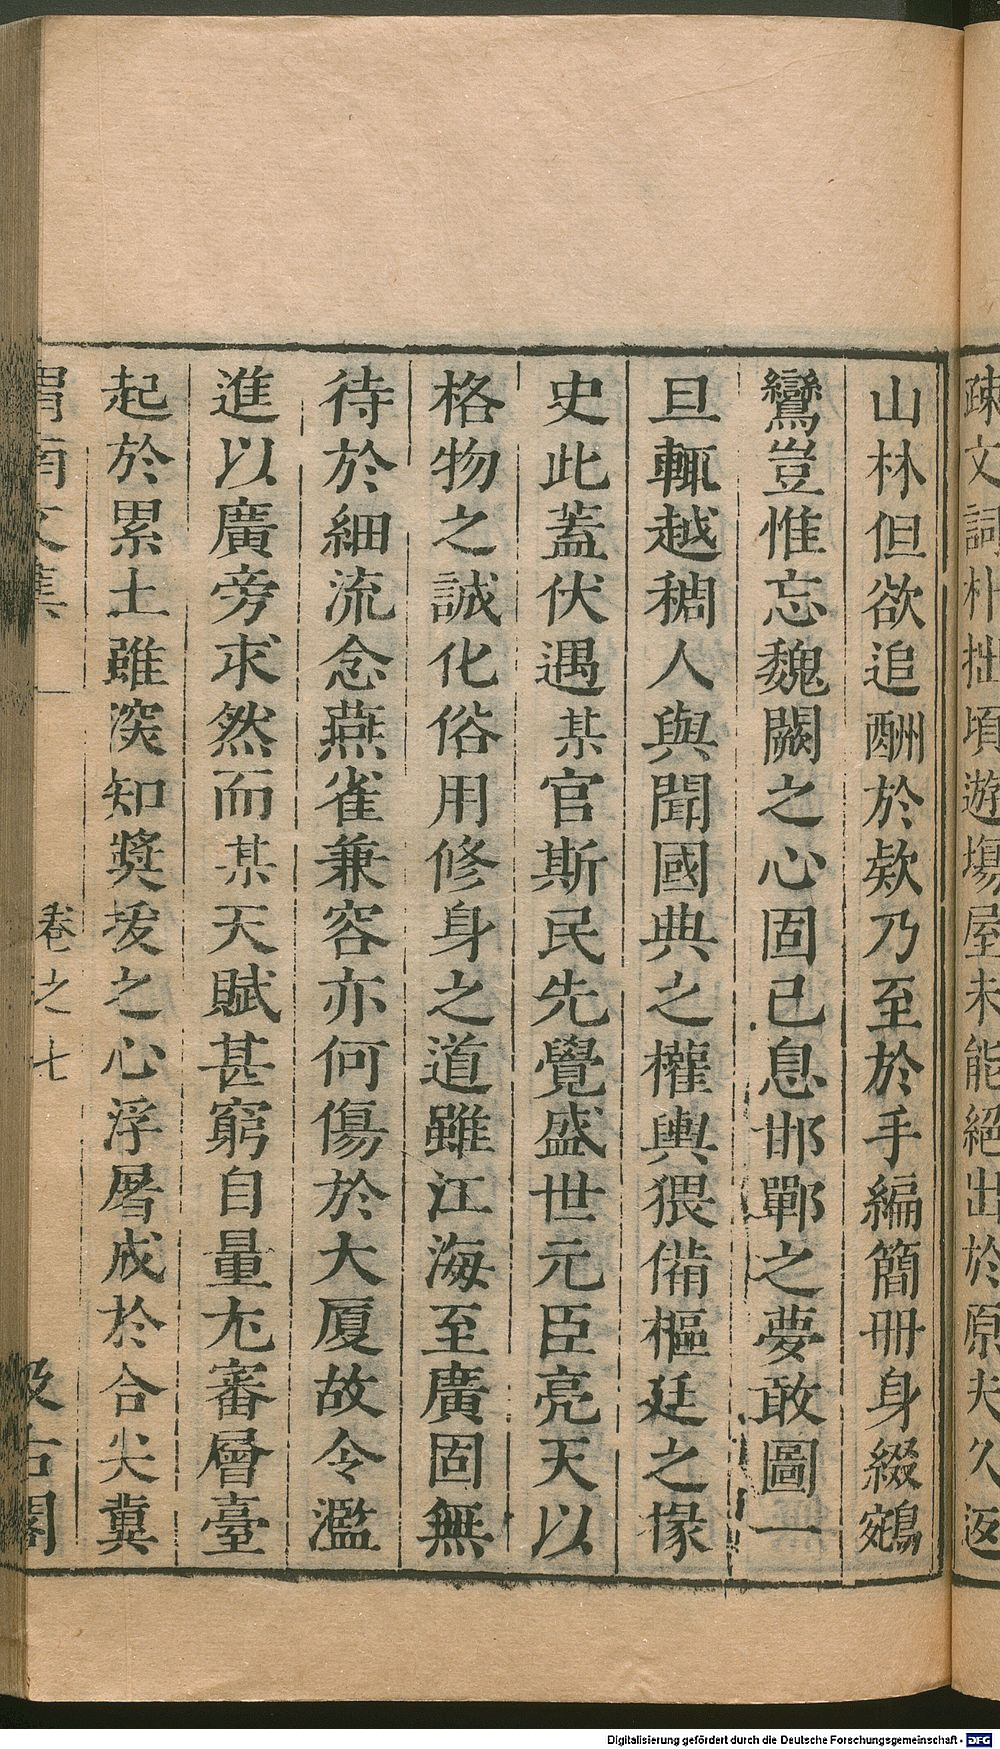 疎文詞朴拙頃遊塲屋未能絕出於原夫久返
山林但欲追酬於欸乃至於手編簡冊身綴鵷
鸞豈惟忘魏闕之心固已息邯鄲之夢敢圖一
旦輒越稠人與聞國典之權輿猥備樞廷之掾
史此蓋伏遇某官斯民先覺盛世元臣亮天以
格物之誠化俗用修身之道雖江海至廣固無
待於細流念燕雀兼容亦何傷於大厦故令濫
進以廣旁求然而某天賦甚窮自量尤審層臺
起於累土雖深知奬拔之心浮屠成於合尖冀
渭南文集 卷之七 汲古閣
Digitalisierung gefördert durch die Deutsche Forschungsgemeinschaft - DFG